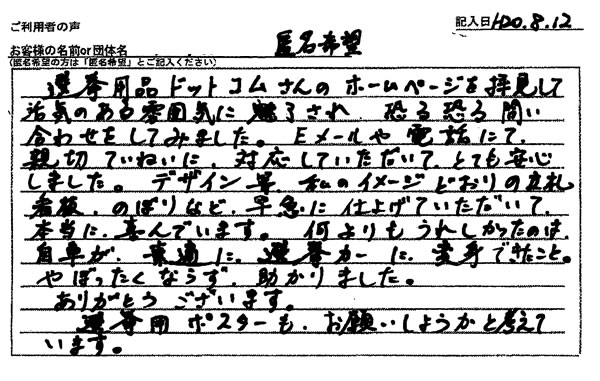 ご利用者の声
記入日H20.8.12
お客様の名前or団体名 匿名希望
(匿名希望の方は「匿名希望」とご記入ください)
選挙用品ドットコムさんのホームページを拝見して
活気のある雰囲気に魅了され 恐る恐る問い
合わせをしてみました。Eメールや電話にて、
親切ていねいに、対応していただいて、とても安心
しました。デザイン等、私のイメージどおりの立札
看板、のぼりなど、早急に仕上げていただいて、
本当に、喜んでいます。何よりもうれしかったのは、
自車が、素適に、選挙カーに、変身できたこと。
やぼったくならず、助かりました。
ありがとうございます。
選挙用ポスターも、お願いしようかと考えて
います。